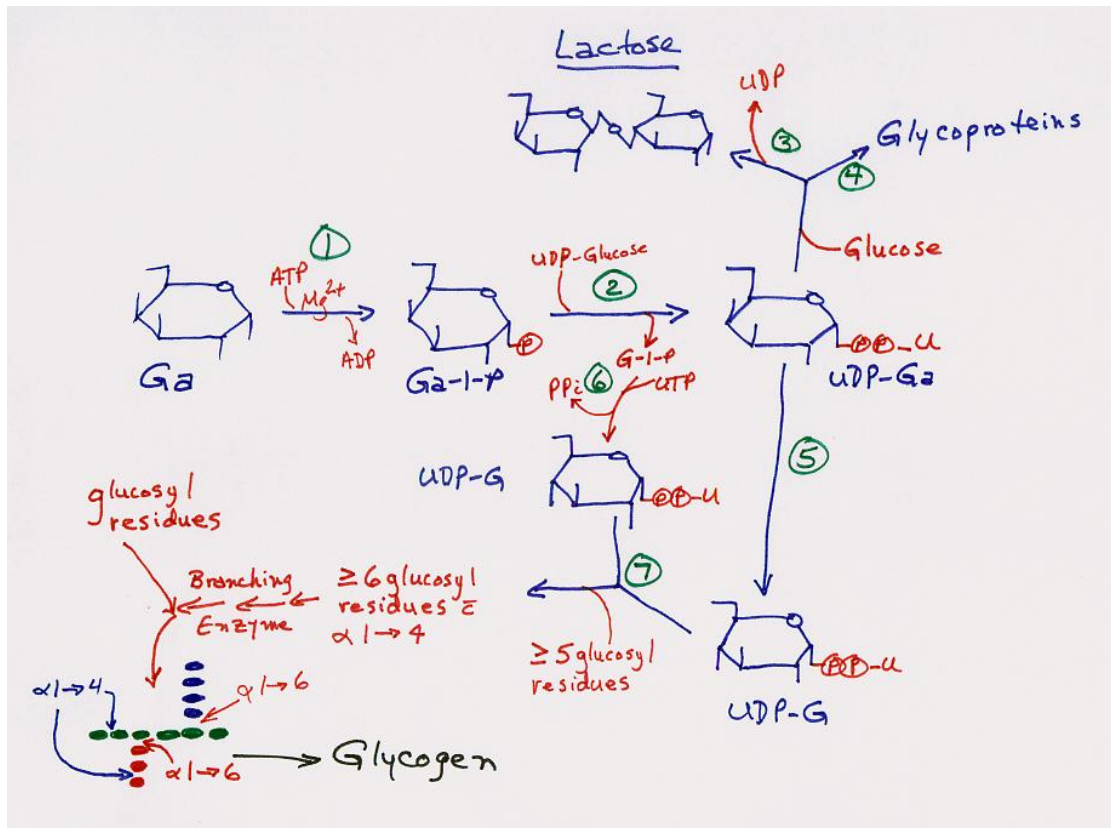 Lactose
UDP
3
Glycoproteins
4
Glucose
1
ATP
Mg2+
ADP
UDP-Glucose
2
G-1-P
P
P P-U
Ga
Ga-1-P
UDP-Ga
PPi
6
UTP
5
UDP-G
P P-U
glucosyl
residues
Branching
Enzyme
≥6 glucosyl
residues c̄
α 1→4
7
≥5 glucosyl
residues
P P-U
UDP-G
α1→4
α 1→6
α 1→6
Glycogen